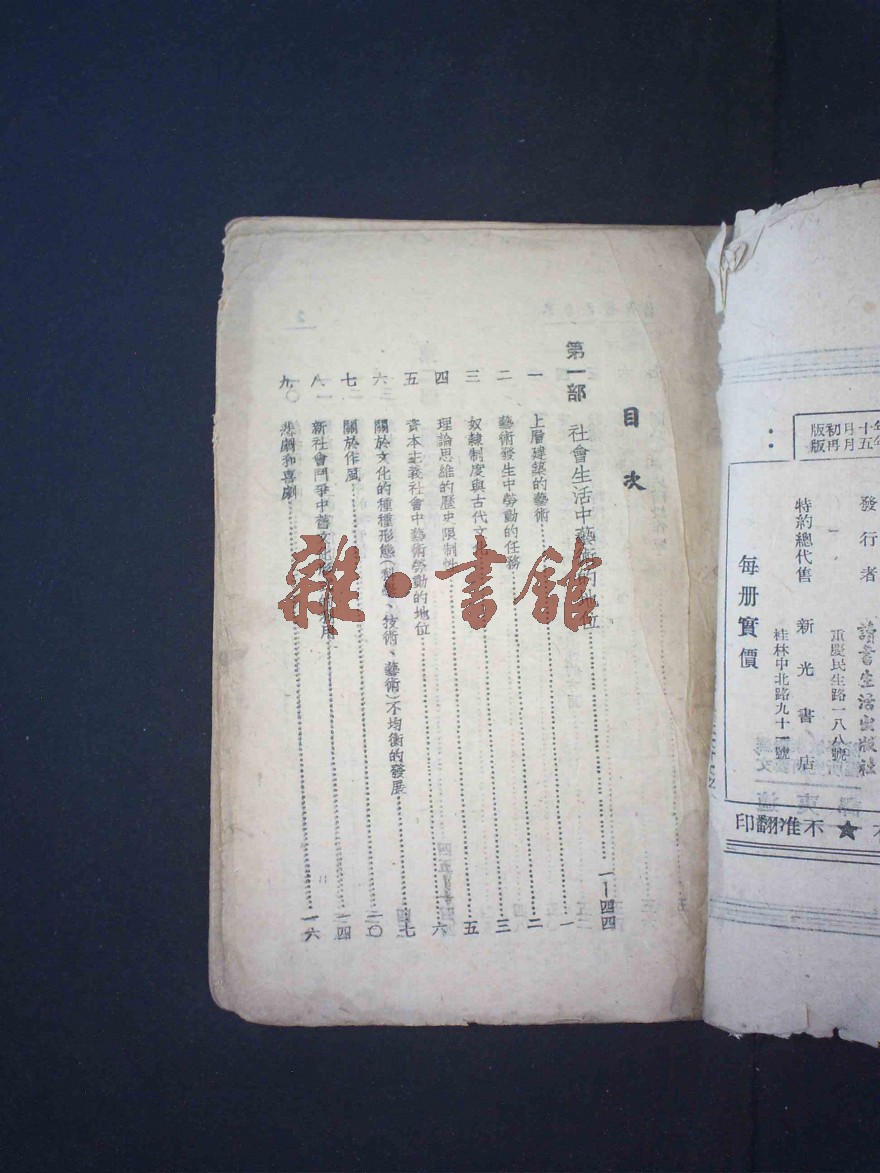 初版
再版
發行者 讀書生活出版社
重慶民生路一八八號
特約總代售 新光書店
桂林中北路九十一號
每册實價
不准翻印
目次
第一部 社會生活中藝術的地位 一—四四
一 上層建築的藝術 一
二 藝術發生中勞動的任務 二
三 奴隸制度與古代文化 三
四 理論思維的歷史限制性 五
五 資本主義社會中藝術勞動的地位 六
六 關於文化的種種形態(科學、技術、藝術)不均衡的發展
七 關於作風
八 新社會鬥爭中舊文化 用
九 悲劇和喜劇 一六
雜·書館